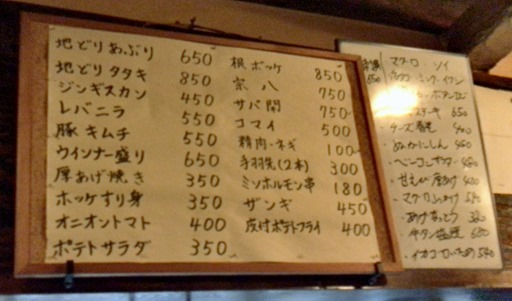 地どりあぶり 650
地どりタタキ 850
ジンギスカン 450
レバニラ 550
豚キムチ 550
ウインナー盛り 650
厚あげ焼き 350
ホッケすり身 350
オニオントマト 400
ポテトサラダ 350
根ボッケ 850
宗八 750
サバ開 750
コマイ 500
精肉・ネギ 100
手羽先(2本) 300
ミソホルモン串 180
ザンギ 450
皮付ポテトフライ 400
マグロ・ソイ
650
ステーキ 650
チーズ春巻 400
・ぬかにしん 450
・ベーコン
・甘えび唐あげ 400
・マグロ
・あげなっとう
・牛タン塩焼 680
・イカゴロ